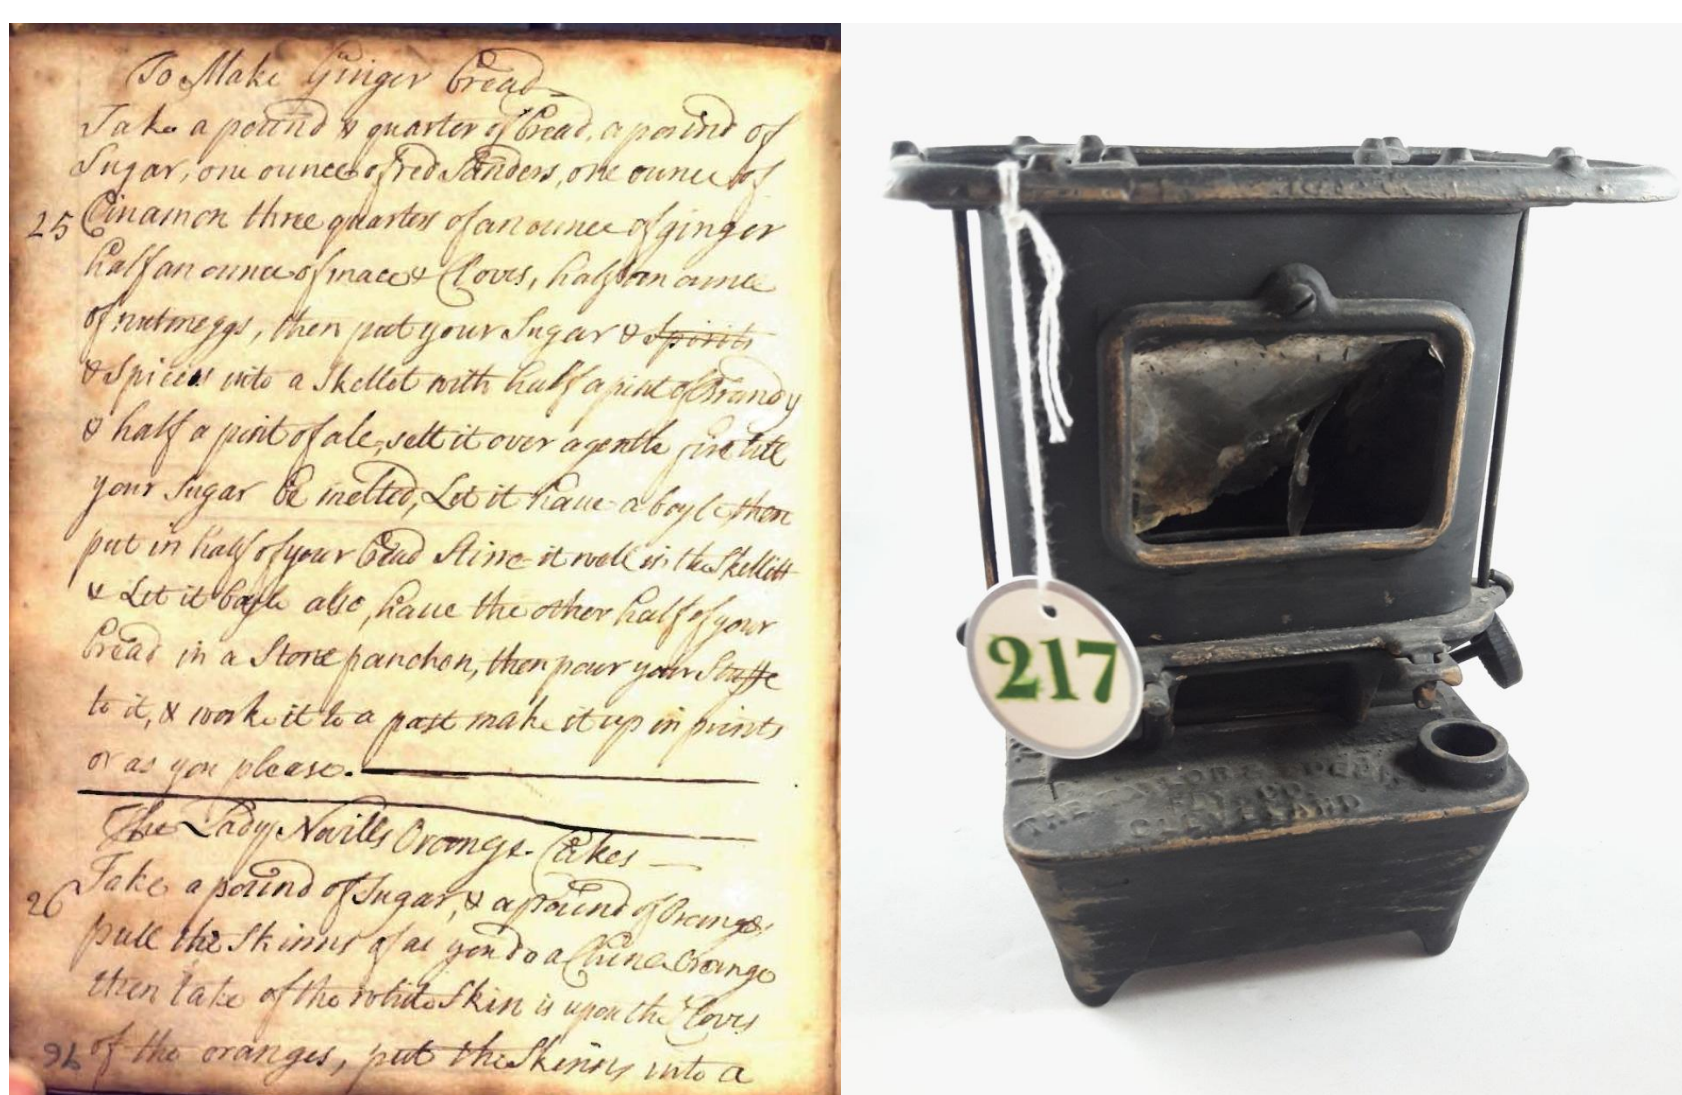 To Make Ginger bread
Take a pound & quarter of bread, a pound of
Sugar, one ounce of red Sanders, one ounce of
25 Cinamon three quarters of an ounce of ginger
half an ounce of mace & Cloves, half an ounce
of nutmeggs, then put your Sugar & Spirits
& Spices into a Skellet with half a pint of Brandy
& half a pint of ale, sett it over a gentle fire till
your Sugar be melted, Let it have a boyle then
put in half of your bread Stirre it well in the Skellett
& Let it boyle also, have the other half of your
bread in a Stone panchon, then pour your Stuffe
to it, & work it to a past make it up in prints
or as you please.
The Lady Nevills Orange Cakes
26 Take a pound of Sugar, & a pound of Oranges
pull the Skinns of as you do a China Orange
then take of the white Skin is upon the Cloves
of the oranges, put the Skinns into a
217
THE
CO.
CLEVELAND